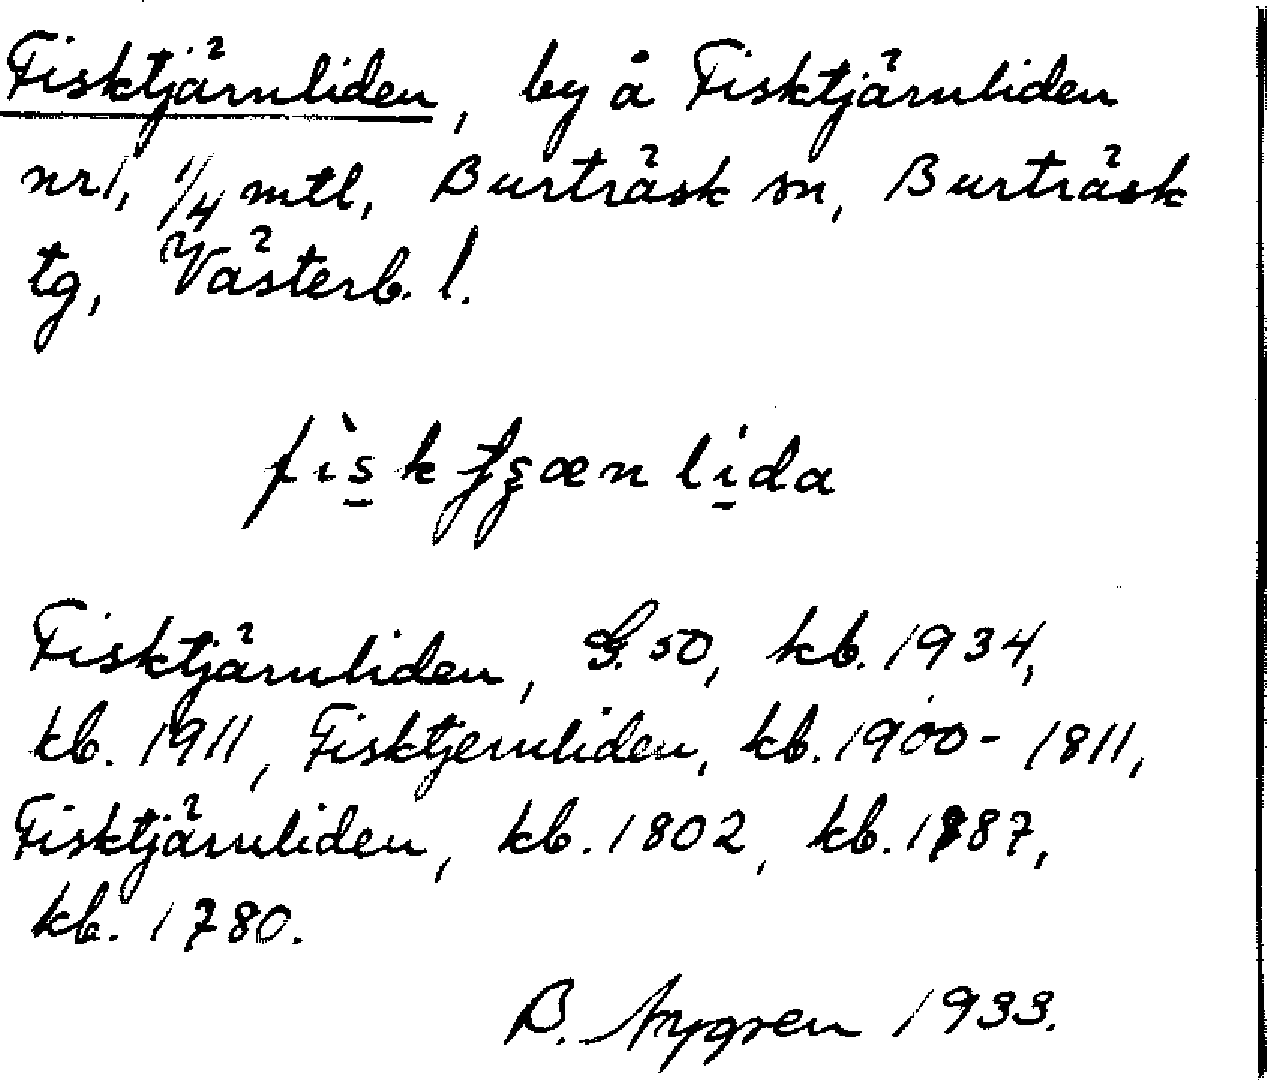 Fisktjärnliden, by å Fisktjärnliden
nr 1, 1/4 mtl, Burträsk sn, Burträsk
tg, Västerb. l.
Fisktjärnliden, G. 50, kb. 1934,
kb. 1911, Fisktjernliden, kb. 1900-1811,
Fisktjärnliden, kb. 1802, kb. 1787,
kb. 1780.
B. Nygren 1933.